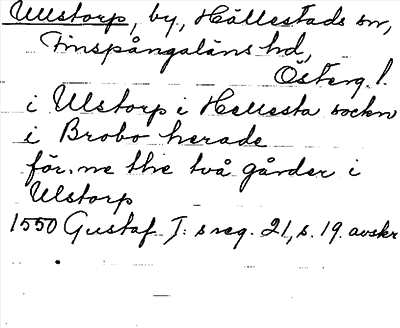 Ulstorp, by, Hällestads sn,
Finspångaläns hd,
Österg. l.
i Ulstorp i Hellesta sockn
i Brobo herade
för:ne the två gårder i
Ulstorp
1550 Gustaf I: s reg. 21, s. 19. avskr